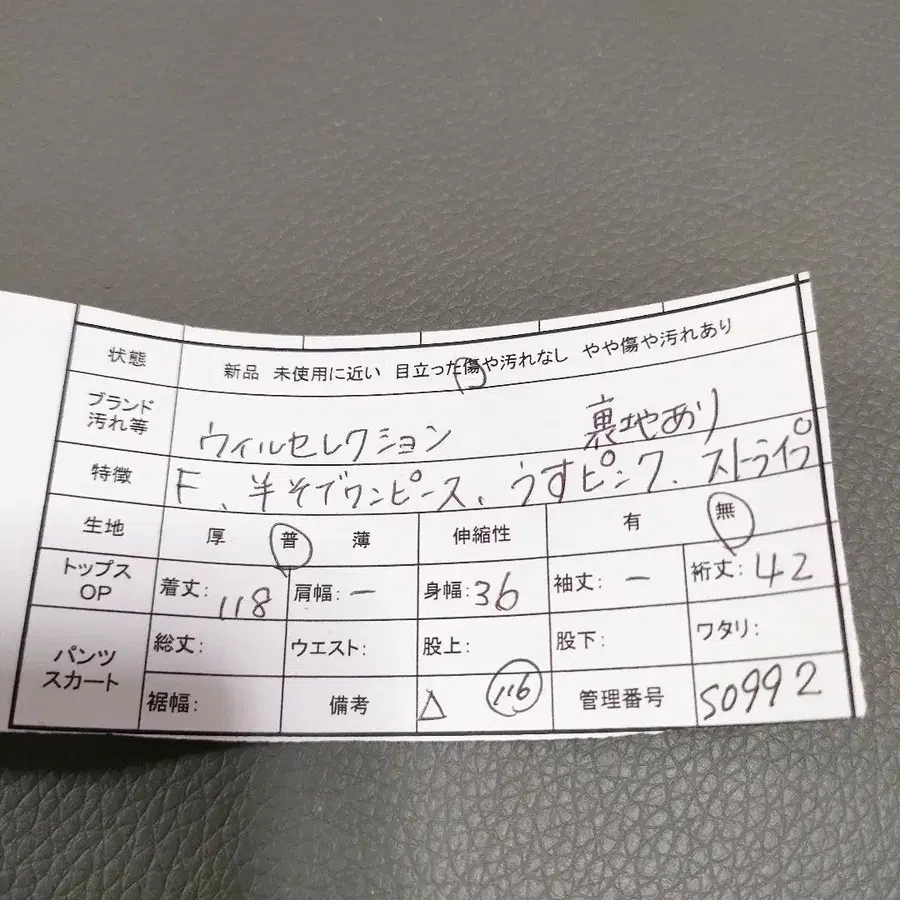 状態 新品 未使用に近い 目立った傷や汚れなし やや傷や汚れあり
ブランド
汚れ等 ウィルセレクション 裏地あり
特徴 F、半そでワンピース、うすピンク、ストライプ
生地 厚 普 薄 伸縮性 有 無
トップス
OP 着丈: 118 肩幅: ー 身幅: 36 袖丈: ー 裄丈: 42
パンツ
スカート 総丈: ウエスト: 股上: 股下: ワタリ:
裾幅: 備考 △ 116 管理番号 S0992